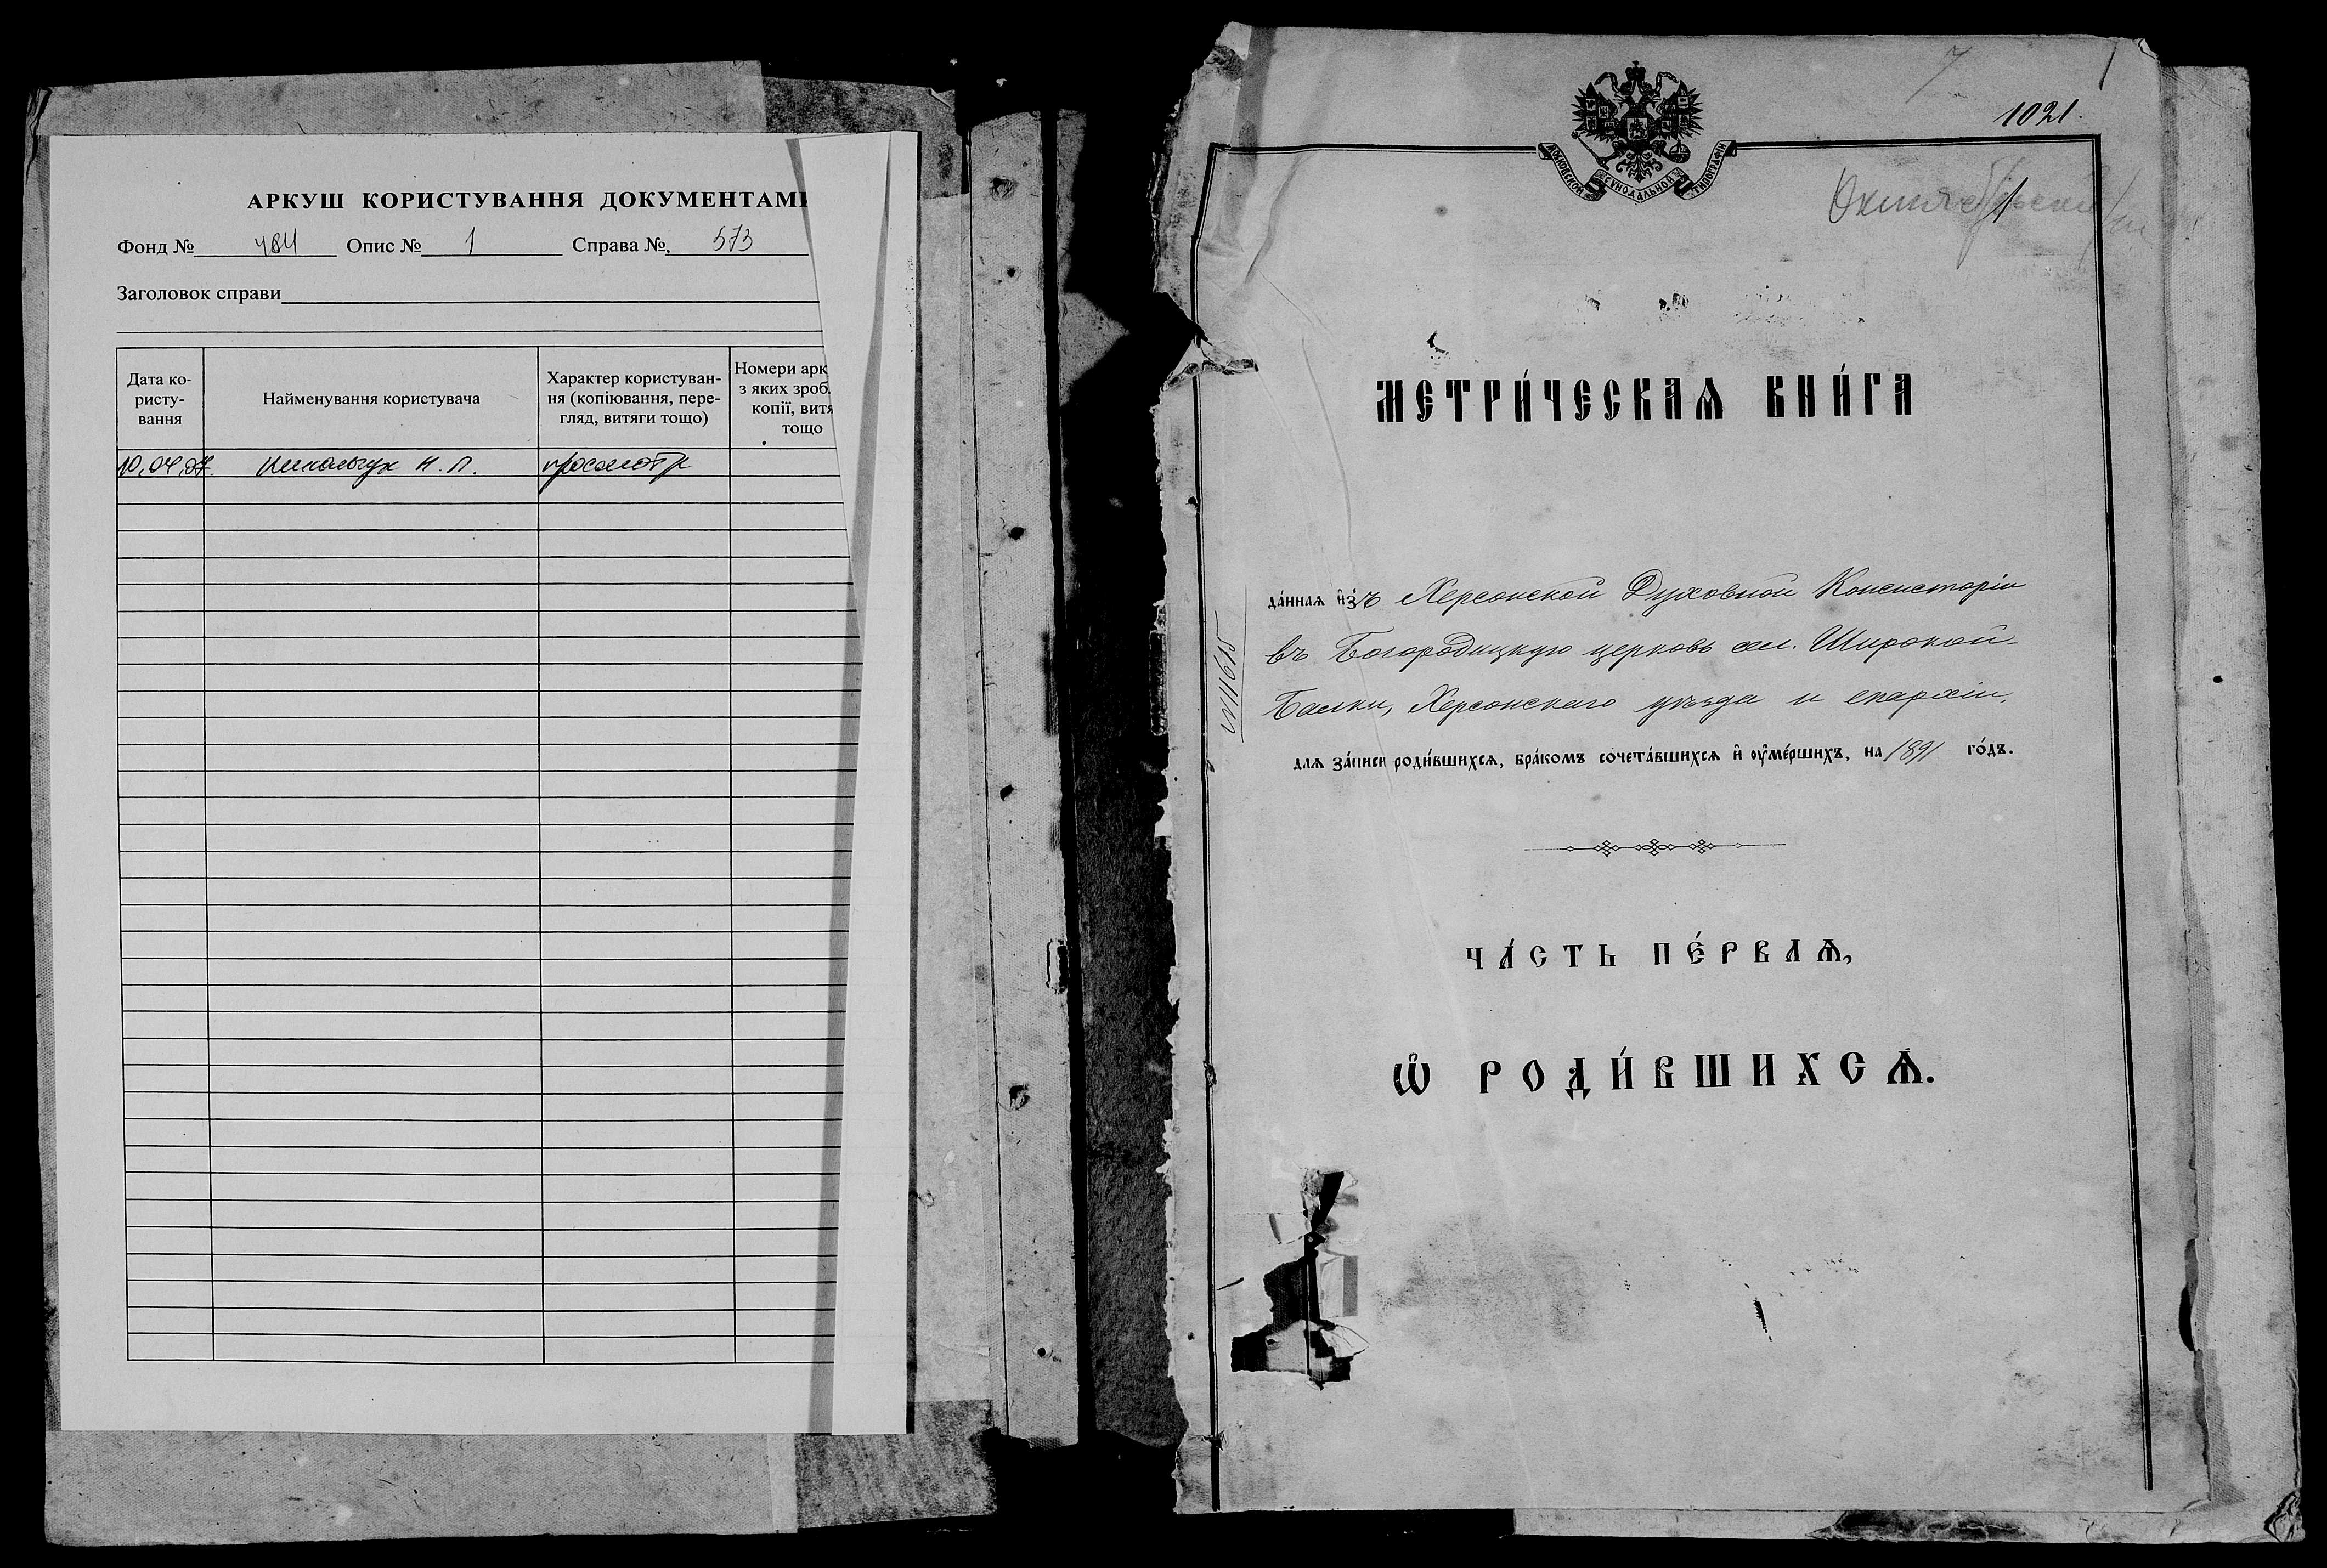 АРКУШ КОРИСТУВАННЯ ДОКУМЕНТАМИ
Фонд № 484 Опис № 1 Справа №, 573
Заголовок справи
Дата ко-
ристу-
вання
Найменування користувача
Характер користуван-
ня (копіювання, пере-
гляд, витяги тощо)
Номери арк
з яких зроб.
копії, витя
тощо
10.04.07. Н. П. просмотр
7 1
1021.
МОСКОВСКОЙ СѴНОДАЛЬНОЙ ТИПОГРАФІИ
МЕТРИ́ЧЕСКАѦ КНИ́ГА
№11615
да́ннаѧ и҆з̾ъ Херсонской Духовной Консисторіи
въ Богородицкую церковь сел. Широкой-
Балки, Херсонскаго уѣзда и епархіи,
длѧ за́писи роди́вшихсѧ, бра́комъ сочета́вшихсѧ и҆ ᲂу҆ме́ршихъ, на 1891 го́дъ.
ЧА́СТЬ ПЕ́РВАѦ,
Ѡ҆ РОДИ́ВШИХСѦ.